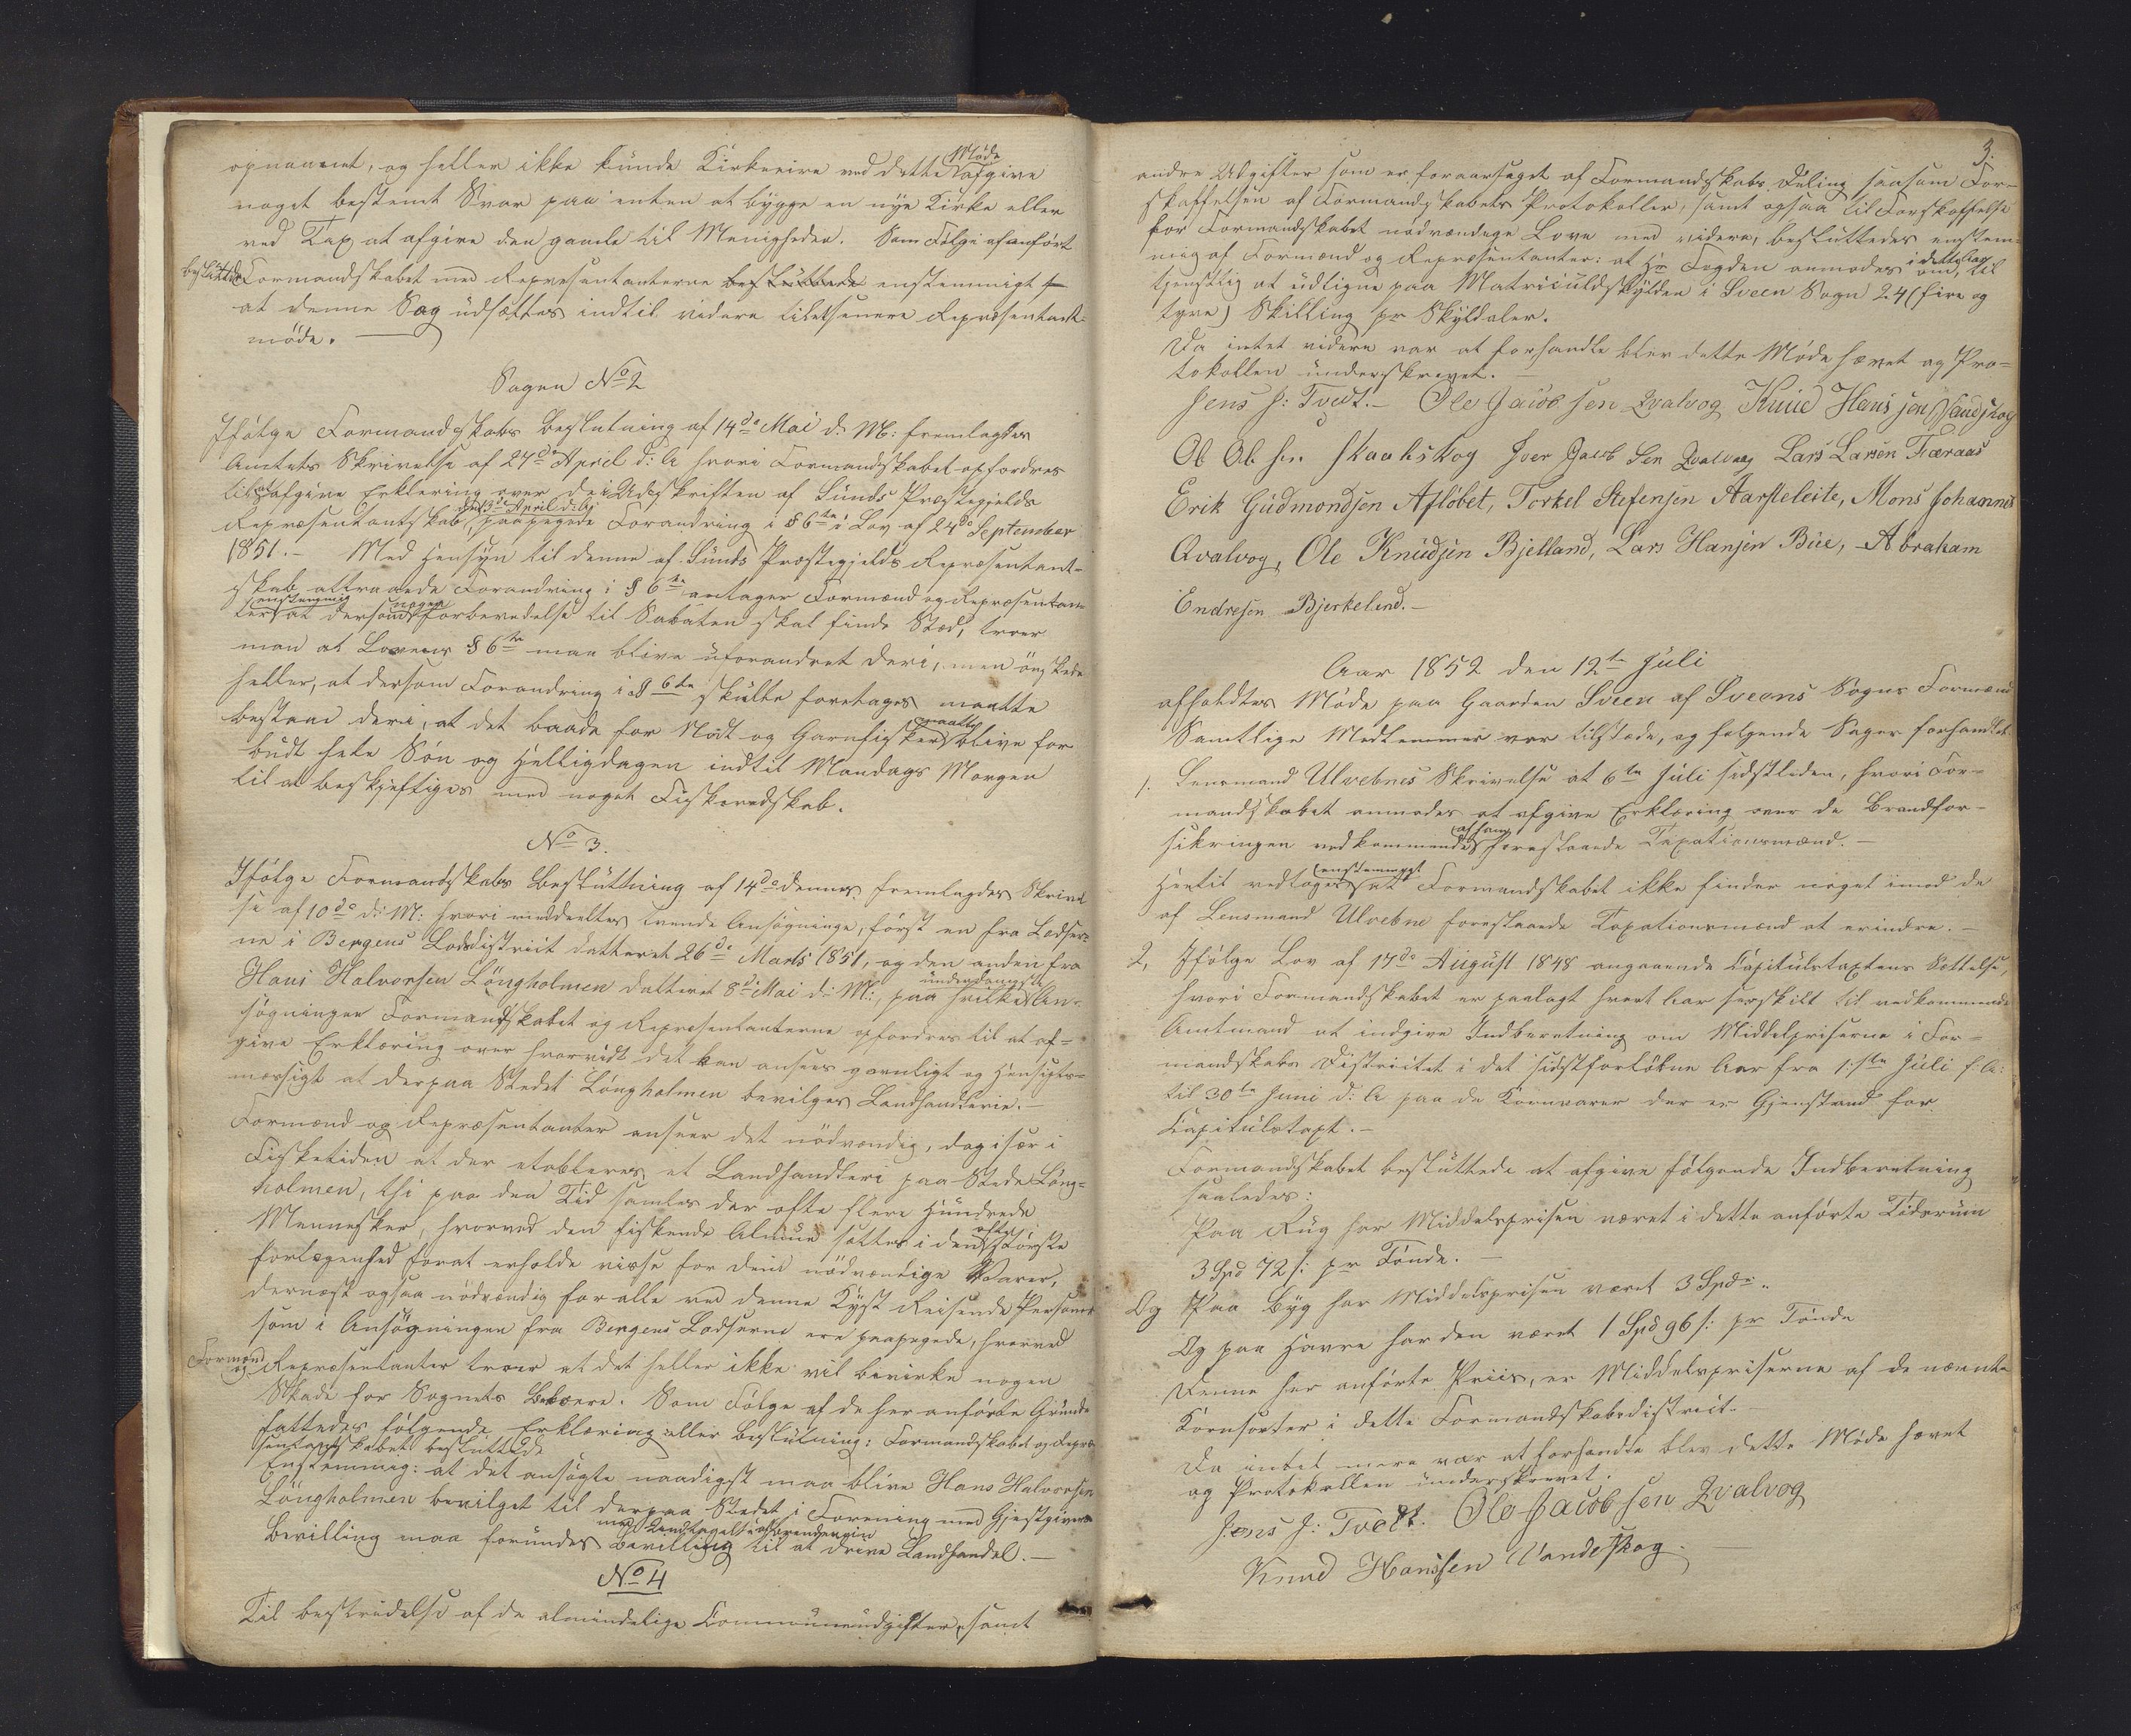 opnaaet, og heller ikke kunde Kirkeeire ved dette Møde afgive
noget bestemt Svar paa enten at bygge en nye Kirke eller
ved Tax at afgive den gamle til Menigheden. Som Følge af anført
besluttede Formandskabet med Representanterne besluttede enstemmigt
at denne Sag udsættes indtil videre til et senere Repræsentant-
møde.
Sagen No 2
Ifølge Formandskabs Beslutning af 14de Mai d. M: fremlagdes
Amtets Skrivelse af 27de April d: A hvori Formandskabet opfordres
til at afgive Erklering over de i Udskriften af Sunds Præstegjelds
Repræsentantskab den 13de April d: A: paapegede Forandring i § 6te i Lov af 24de September
1851. - Med Hensyn til denne af Sunds Præstegjelds Repræsentant-
skab attraaede Forandring i § 6te antager Formænd og Repræsentan-
ter enstemmig at dersom nogen forberedelse til Sabaten skal finde Sted, troer
man at Lovens § 6te maa blive uforandret deri, men ønskede
heller, at dersom Forandring i § 6te skulle foretages maatte
bestaae deri, at det baade for Nodt og Garnfisker maatte blive for
budt hele Søn og Helligdagen indtil Mandags Morgen
til at beskjeftiges med noget Fiskeredskab.
No 3.
Ifølge Formandskabs Beslutning af 14de dennes fremlagdes Skrivel
se af 10de d: M: hvori meddeeltes tvende Ansøgninge, først en fra Lodser-
ne i Bergens Lodsdistrict datteret 26de Marts 1851, og den anden fra
Hans Halvorsen Løngholmen datteret 8de Mai d: M:, paa hvilke underdanigste An-
søgninger Formandskabet og Repræsentanterne opfordres til at af-
give Erklæring over hvorvidt det kan ansees gavnligt og Hensigts-
mæssigt at der paa Stedet Løngholmen bevilges Landhandlerie. -
Formænd og Repræsentanter anseer det nødvendig, dog især i
Fisketiden at der etableres et Landhandleri paa Stede Løng-
holmen, thi paa den Tid samles der ofte flere Hundrede
Mennesker, hvorved den fiskende Almue sættes i den ofte største
forlegenhed forat erholde visse for dem nødvendige Varer,
dernæst ogsaa nødvendig for alle ved denne Kyst Reisende Personer
som i Ansøgningen fra Bergens Lodserne ere paapegede, hvorved
Formænd og Repræsentanter troer at det heller ikke vil bevirke nogen
Skade for Sognets Beboere. Som Følge af de her anførte Grunde
fattedes følgende Erklæring eller Beslutning: Formandskabet og Repræ
sentantskabet besluttede
Enstemmig: at det ansøgte naadigst maa blive Hans Halvorsen
Løngholmen bevilget til der paa Stedet i Forening med Gjestgiver-
Bevilling maa forundes Bevilling til at drive Landhandel. -
No 4
Til bestridelse af de almindelige Communeudgifter, samt
3.
andre Udgifter som er foraarsaget af Formandskabs Deling saasom For-
skaffelsen af Formandskabets Protokoller, samt ogsaa til Forskaffelse
for Formandskabet nødvendige Love med videre, besluttedes enstem-
mig af Formænd og Repræsentanter: at Hr Fogden anmodes i dette Aar om, til
tjenstlig at udligne paa Matriculdskylden i Sveen Sogn 24 (fire og
tyve) Skilling pr Skyldaler.
Da intet videre var at forhandle blev dette Møde hævet og Pro-
tokollen underskrevet. -
Jens J: Tvedt. - Ole Jacobsen Qvalvog Knud Hansen Vandskog
Ol Ol sen Skaakskog Iver Jacob Sen Qvalvaag Lars Larsen Færaas
Erik Gudmondsen Afløbet, Torkel Stefensen Aarsleleite, Mons Johannes
Qvalvog, Ole Knudsen Bjelland, Lars Hansen Bue, Abraham
Endresen Bjerkelund. -
Aar 1852 den 12te Juli
afholdtes Møde paa Gaarden Sveen af Sveens Sogns Formænd
Samtlige Medlemmer var tilstæde, og følgende Sager forhandlet.
1. Lensmand Ulvebnes Skrivelse at 6te Juli sidstleden, hvori For-
mandskabet anmodes at afgive Erklæring over de Brandfor-
sikringen vedkommende af ham foreslaaede Taxationsmænd. -
Hertil vedtoges enstemmigt at Formandskabet ikke finder noget imod de
af Lensmand Ulvebne foreslaaede Taxationsmænd at erindre. -
2, Ifølge Lov af 17de August 1848 angaaende Capitulstaxtens Sættelse,
hvori Formandskabet er paalagt hvert Aar særskilt til vedkommende
Amtmand at indgive Indberetning om Middelpriserne i For-
mandskabs Districtet i det sidstforløbne Aar fra 1ste Juli f. A:
til 30te Juni d: A paa de Kornvarer der er Gjenstand for
Capitulstaxt. -
Formandskabet besluttede at afgive følgende Indberetning
saaledes:
Paa Rug har Middelsprisen været i dette anførte Tidsrum
3 Spd 72 s: pr Tønde. -
Og Paa Byg har Middelsprisen været 3 Spd: "
Og paa Havre har den været 1 Spd 96 s: pr Tønde
Denne her anførte Priis, er Middelspriserne af de nævnte
Kornsorter i dette Formandskabsdistrict.
Da intet mere var at forhandle blev dette Møde hævet
og Protokollen underskrevet.
Jens J: Tvedt. Ole Jacobsen Qvalvog
Knud Hansen Vandeskog.